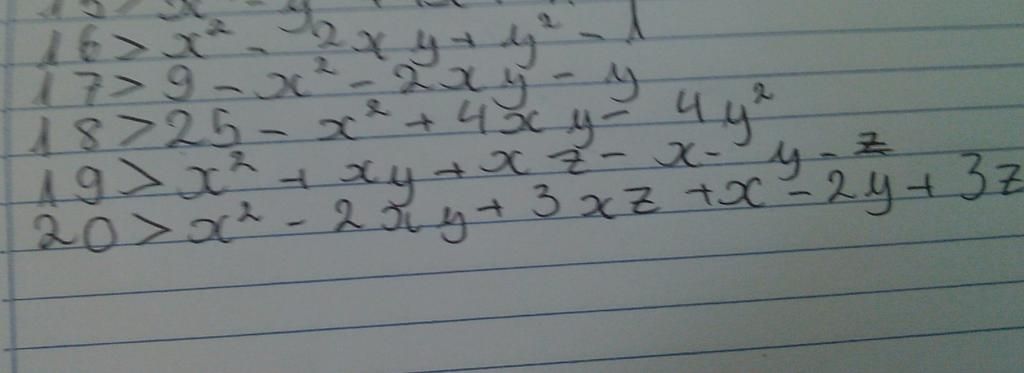 16> x² - 2xy + y² - 1
17> 9 - x² - 2xy - y
18> 25 - x² + 4xy - 4y²
19> x² + xy + xz - x - y - z
20> x² - 2xy + 3xz + x - 2y + 3z